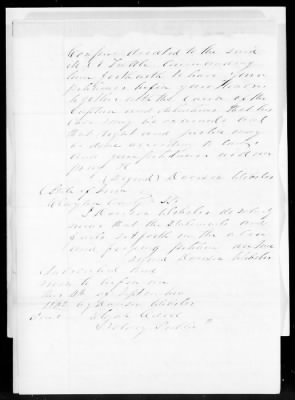 Confine directed to the said
M. S. Tuttle Commanding
him forthwith to have your
petitioner before your Honor
together with the cause of the
Caption and detention that his
case may be examined and
that right and justice may
be done according to law
And your petitioner will ever
pray &c
(Signed) Webster
(State of Iowa
Clayton County } SS.
I Webster do solemnly
swear that the Statements and
facts set forth in the above
and foregoing petition are true
Signed Webster
Subscribed and
sworn to before me
this 9th of September
1862 by Webster
Notary Public"